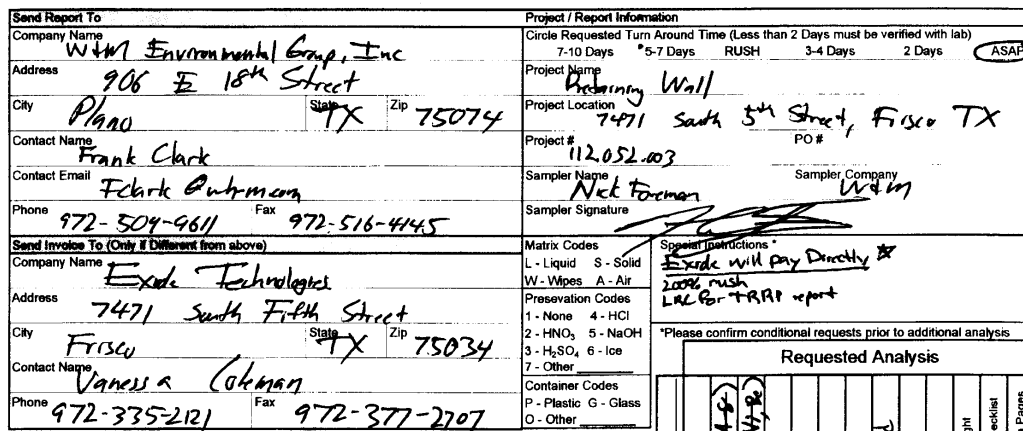 Send Report To
Company Name W+M Environmental Group, Inc
Address 906 E 18th Street
City Plano State TX Zip 75074
Contact Name Frank Clark
Contact Email
Phone 972-509-9611 Fax 972-516-4145
Send Invoice To (Only if Different from above)
Company Name Exide Technologies
Address 7471 South Fifth Street
City Frisco State TX Zip 75034
Contact Name Vanessa Coleman
Phone 972-335-2121 Fax 972-377-2707
Project / Report Information
Circle Requested Turn Around Time (Less than 2 Days must be verified with lab)
7-10 Days *5-7 Days RUSH 3-4 Days 2 Days ASAP
Project Name Retaining Wall
Project Location 7471 South 5th Street, Frisco TX
Project # 112.052.003 PO #
Sampler Name Nick Foreman Sampler Company W+M
Sampler Signature
Matrix Codes
L - Liquid S - Solid
W - Wipes A - Air
Presevation Codes
1 - None 4 - HCl
2 - HNO₃ 5 - NaOH
3 - H₂SO₄ 6 - Ice
7 - Other
Container Codes
P - Plastic G - Glass
O - Other
Special Instructions *
Exide will pay Directly
200% rush
LRC for TRRP report
*Please confirm conditional requests prior to additional analysis
Requested Analysis
ecklist
Pages